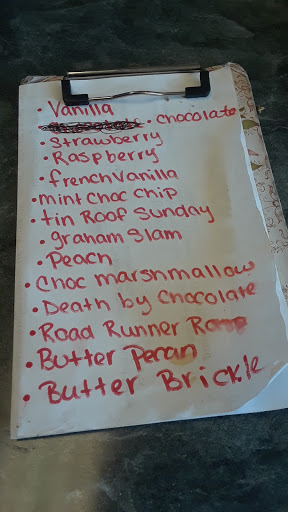 • Vanilla
• Chocolate
• Strawberry
• Raspberry
• french Vanilla
• mint Choc Chip
• tin Roof Sunday
• graham Slam
• Peach
• Choc marshmallow
• Death by Chocolate
• Road Runner Rasp
• Butter Pecan
• Butter Brickle